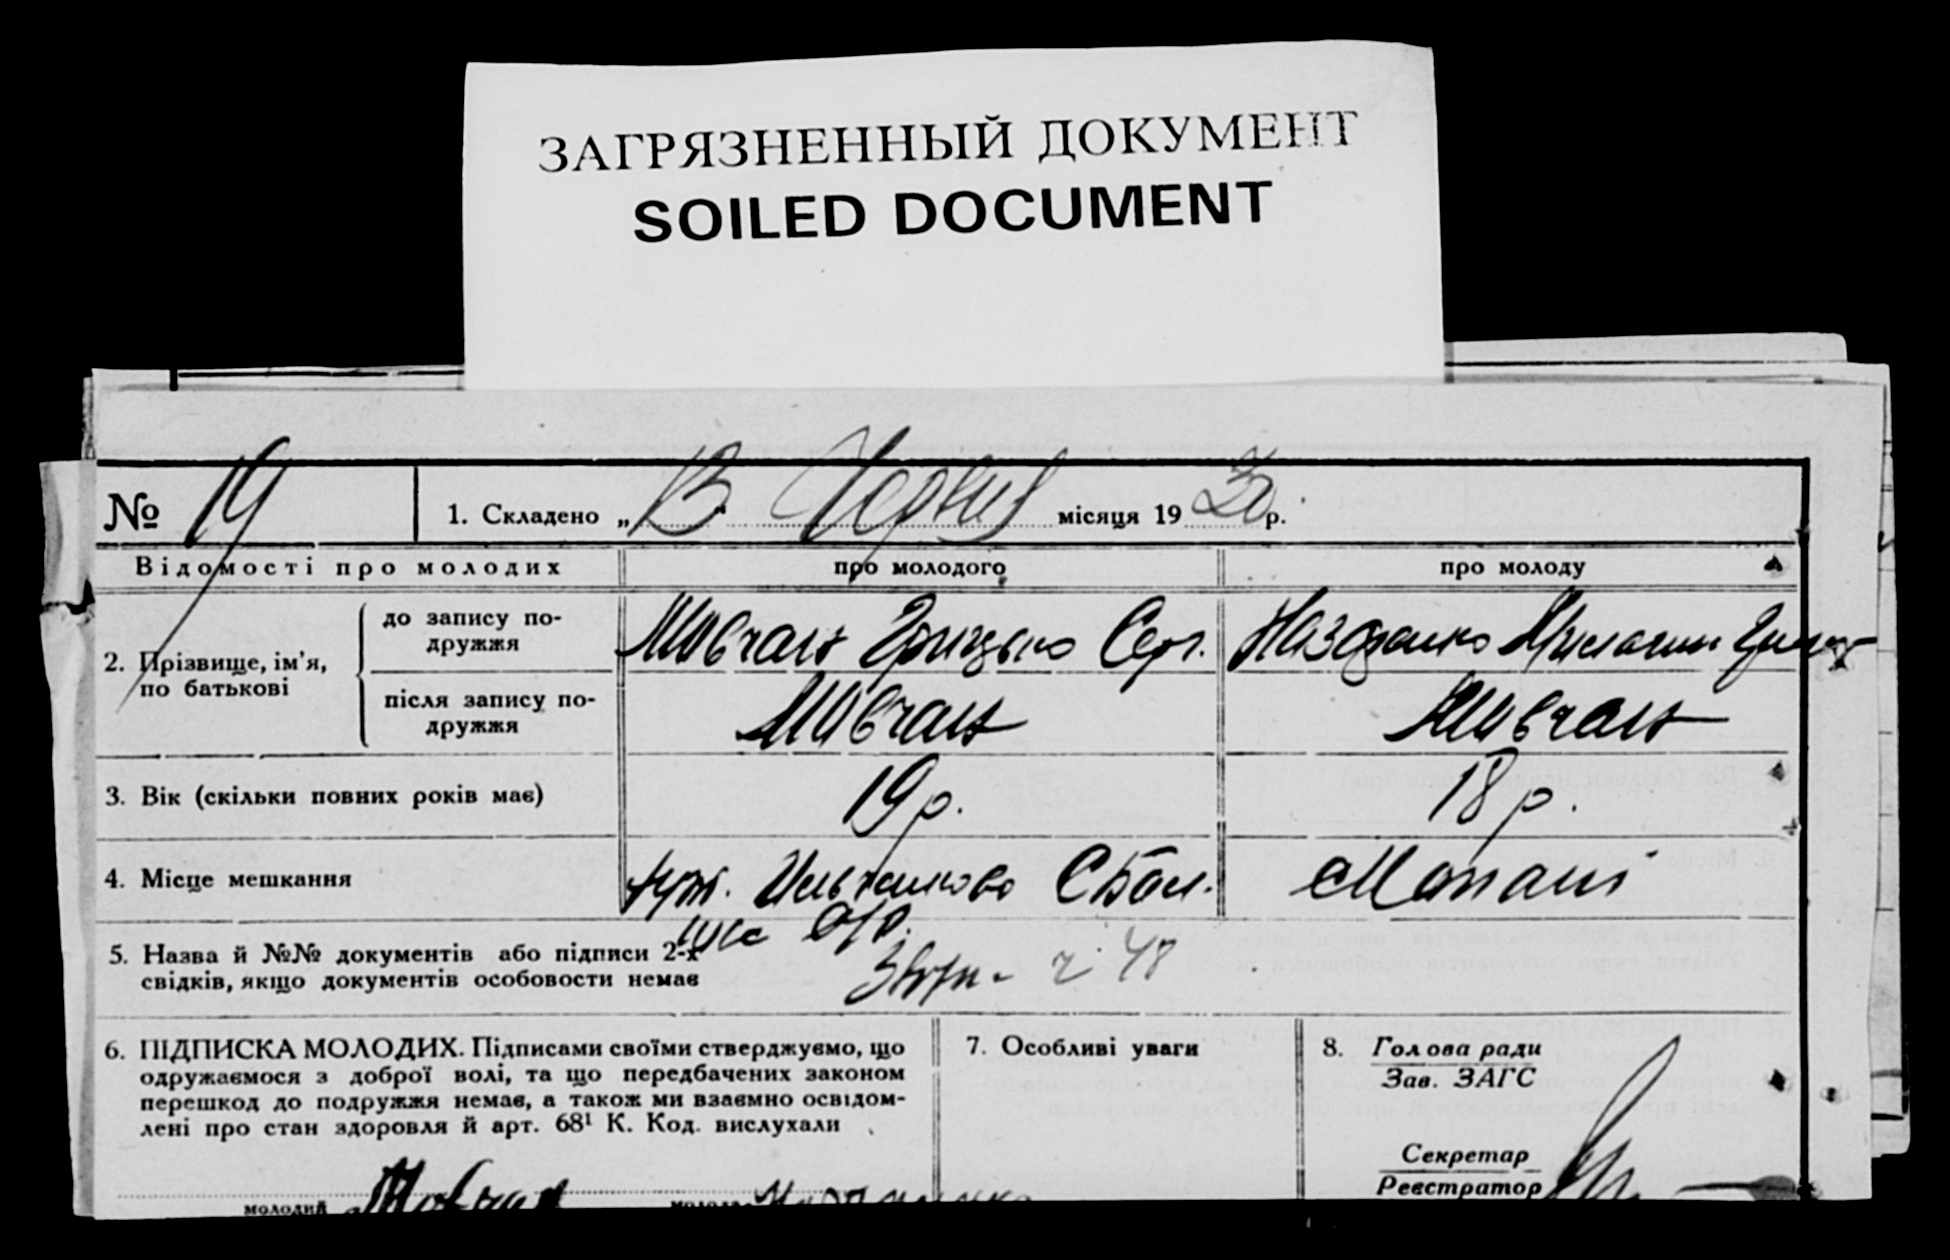 ЗАГРЯЗНЕННЫЙ ДОКУМЕНТ
SOILED DOCUMENT
№ 19
1. Складено „13“ Червня місяця 1930 р.
Відомості про молодих
про молодого
про молоду
2. Прізвище, ім'я, по батькові
до запису по-
дружжя
Мовчан Грицько Серг.
після запису по-
дружжя
Мовчан
Мовчан
3. Вік (скільки повних років має)
19 р.
18 р.
4. Місце мешкання
хут.
5. Назва й №№ документів або підписи 2-х
свідків, якщо документів особовости немає
ч 48
6. ПІДПИСКА МОЛОДИХ. Підписами своїми стверджуємо, що
одружаємося з доброї волі, та що передбачених законом
перешкод до подружжя немає, а також ми взаємно освідом-
лені про стан здоровля й арт. 68¹ К. Код. вислухали
молодий Мовчан
молода
7. Особливі уваги
8. Голова ради
Зав. ЗАГС
Секретар
Реєстратор